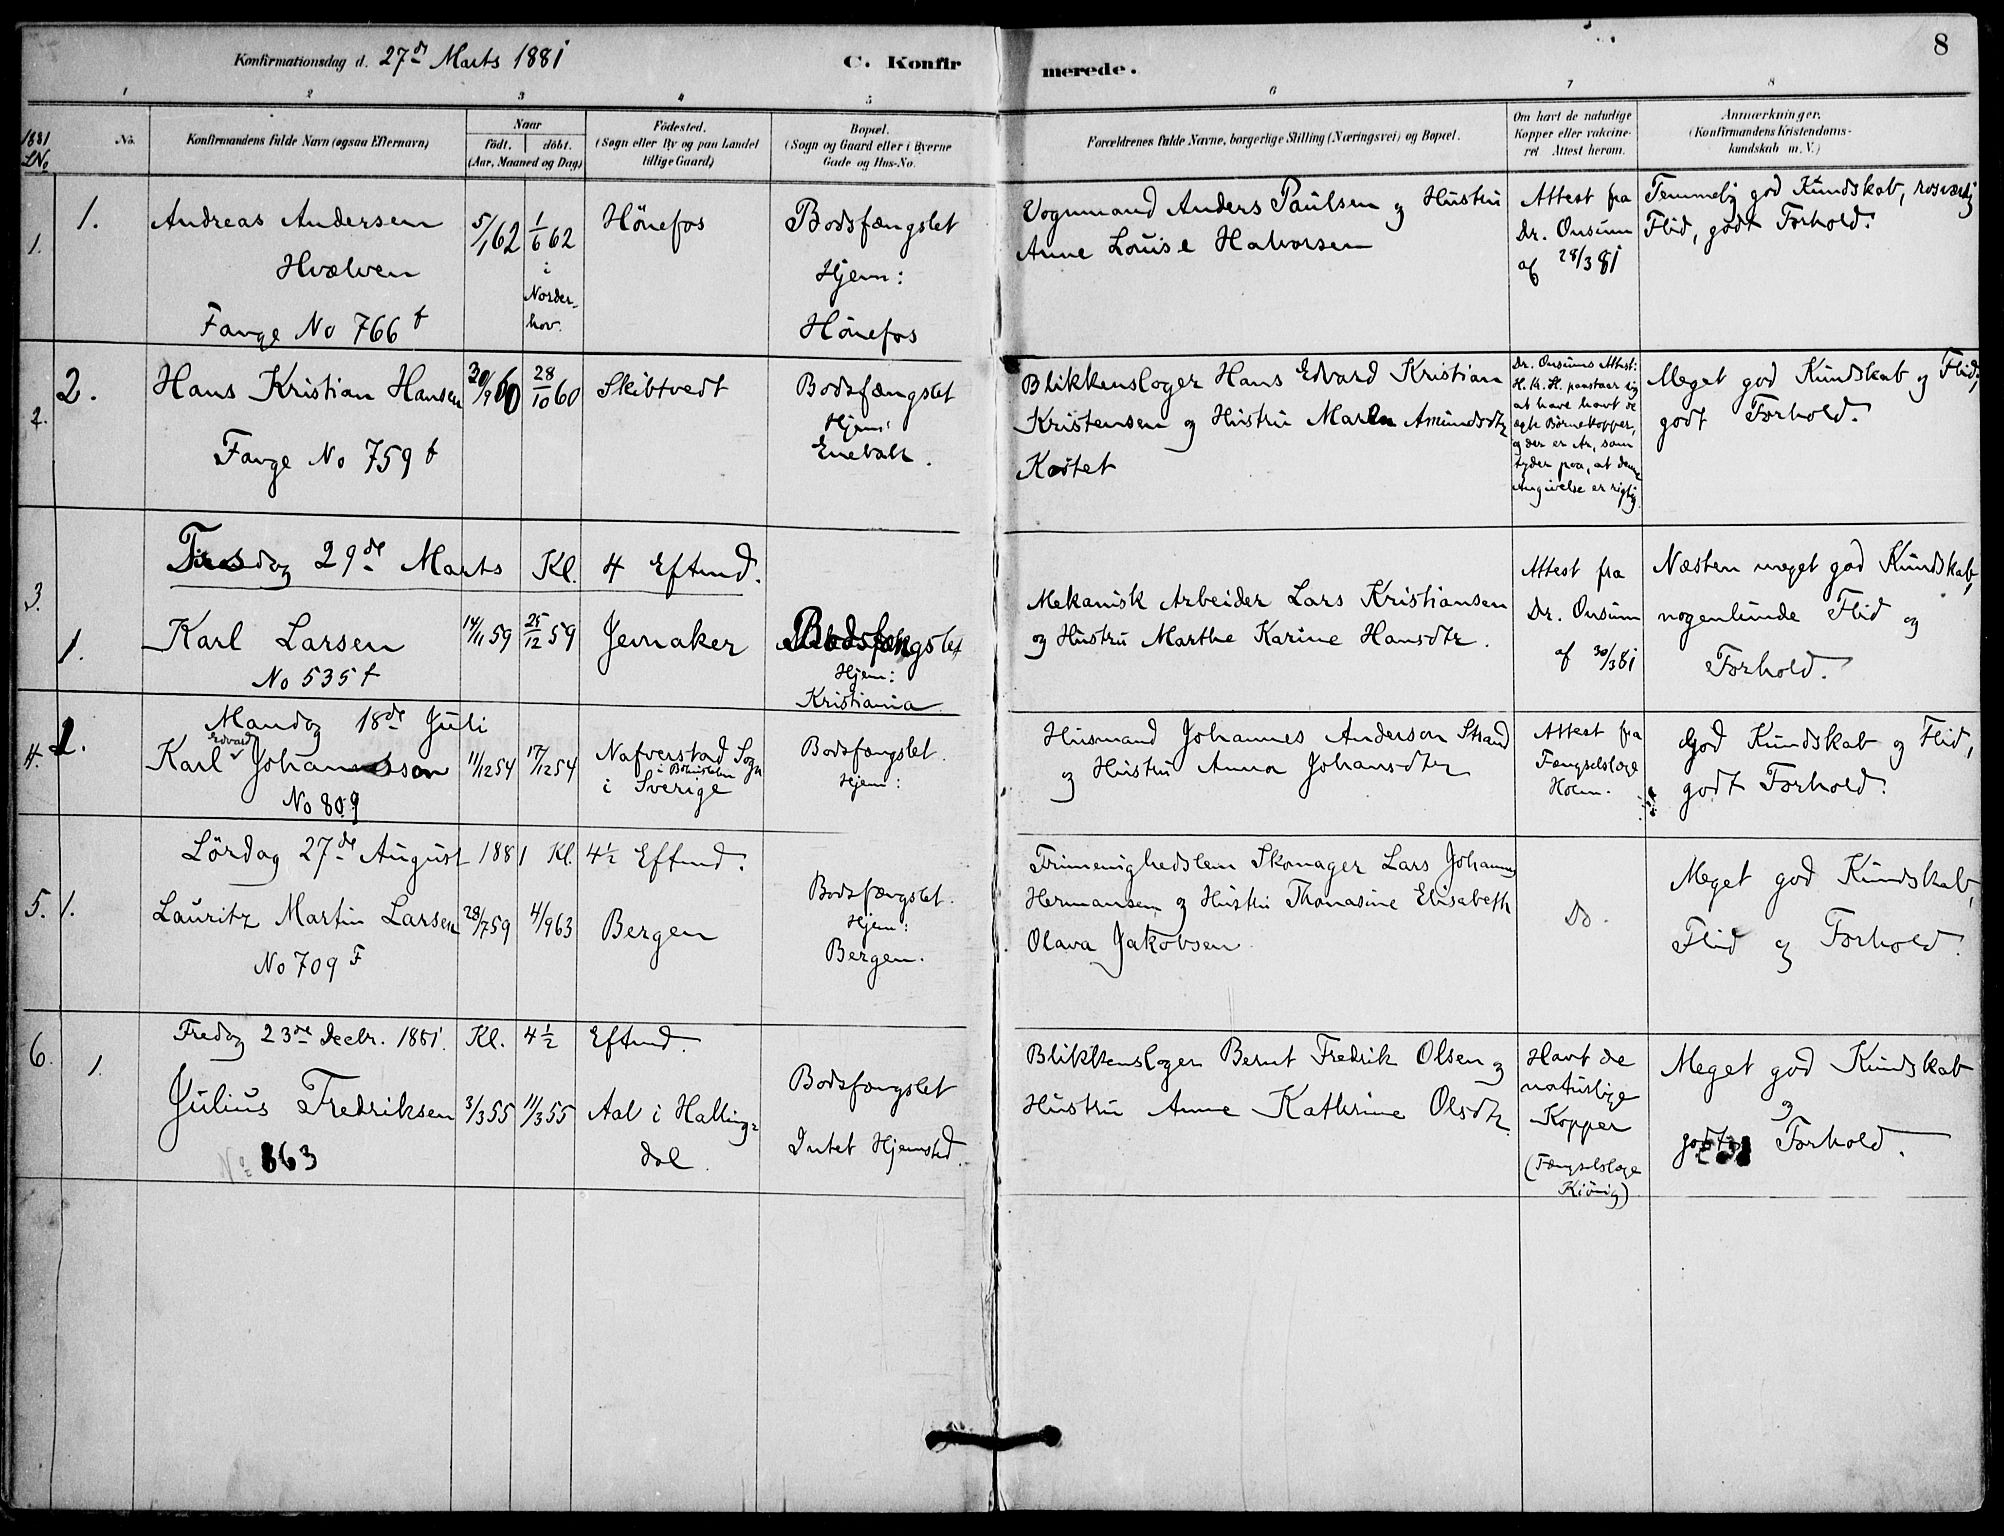 8
Konfirmationsdag d. 27de Marts 1881
C. Konfirmerede.
1 2 3 4 5 6 7 8
1881
LNo
No.
Konfirmandens fulde Navn (ogsaa Efternavn)
Naar
födt. döbt.
(Aar, Maaned og Dag)
Födested.
(Sogn eller By og paa Landet
tillige Gaard)
Bopæl.
(Sogn og Gaard eller i Byerne
Gade og Hus-No.
Forældrenes fulde Navne, borgerlige Stilling (Næringsvei) og Bopæl.
Om havt de naturlige
Kopper eller vakcine-
ret Attest herom.
Anmærkninger.
(Konfirmandens Kristendoms-
kundskab m. V.)
1.
1.
Andreas Andersen
Hvælven
Fange No 766 f
5/1 62
1/6 62
i
Norder-
hov.
Hönefos
Bodsfængslet
Hjem:
Hönefos
Vognmand Anders Paulsen og Hustru
Anne Louise Halvorsen
Attest fra
Dr. Onsum
af 28/3 81
Temmelig god Kundskab, rosværdig
Flid, godt Forhold.
2.
2.
Hans Kristian Hansen
Fange No 759 f
30/9 60
28/10 60
Skibtvedt
Bodsfængslet
Hjem:
Enebak.
Blikkensloger Hans Edvard Kristian
Kristensen og Hustru Maren Amundsdtr
Kastet
Dr. Onsums Attest:
H. K. H. paastaar sig
at have havt de
ægte Børnekopper,
og der er Ar, som
tyder paa, at denne
Angivelse er rigtig
Meget god Kundskab og Flid,
godt Forhold.
Tirsdag 29de Marts Kl. 4 Eftmd.
3.
1.
Karl Larsen
No 535 f
14/11 59
25/12 59
Jevnaker
Bodsfængslet
Hjem:
Kristiania
Mekanisk Arbeider Lars Kristiansen
og Hustru Marthe Karine Hansdtr.
Attest fra
Dr. Onsum
af 30/3 81
Næsten meget god Kundskab,
nogenlunde Flid og
Forhold.
Mandag 18de Juli
4.
1.
Edvard
Karl Johansson
No 809
11/12 54
17/12 54
Nafverstad Sogn
i Bohuslehn
i Sverige
Bodsfængslet.
Hjem:
Husmand Johannes Anderson Strand
og Hustru Anna Johansdtr
Attest fra
Fængselslæge
Holm.
God Kundskab og Flid,
godt Forhold.
Lördag 27de August 1881 Kl. 4½ Eftmd.
5.
1.
Lauritz Martin Larsen
No 709 F
28/7 59
4/9 63
Bergen
Bodsfængslet.
Hjem:
Bergen.
Foreningslem Skomager Lars Johannes
Hermansen og Hustru Thomasine Elisabeth
Olava Jakobsen
Do.
Meget god Kundskab,
Flid og Forhold.
Fredag 23de Decbr. 1881. Kl. 4½ Eftmd.
6.
1.
Julius Fredriksen
No 863
3/3 55
11/3 55
Aal i Halling-
dal.
Bodsfængslet
Intet Hjemsted.
Blikkensloger Bernt Fredrik Olsen og
Hustru Anne Kathrine Olsdtr.
Havt de
naturlige
Kopper
(Fængselslæge
Kiönig)
Meget god Kundskab
og
godt Forhold.